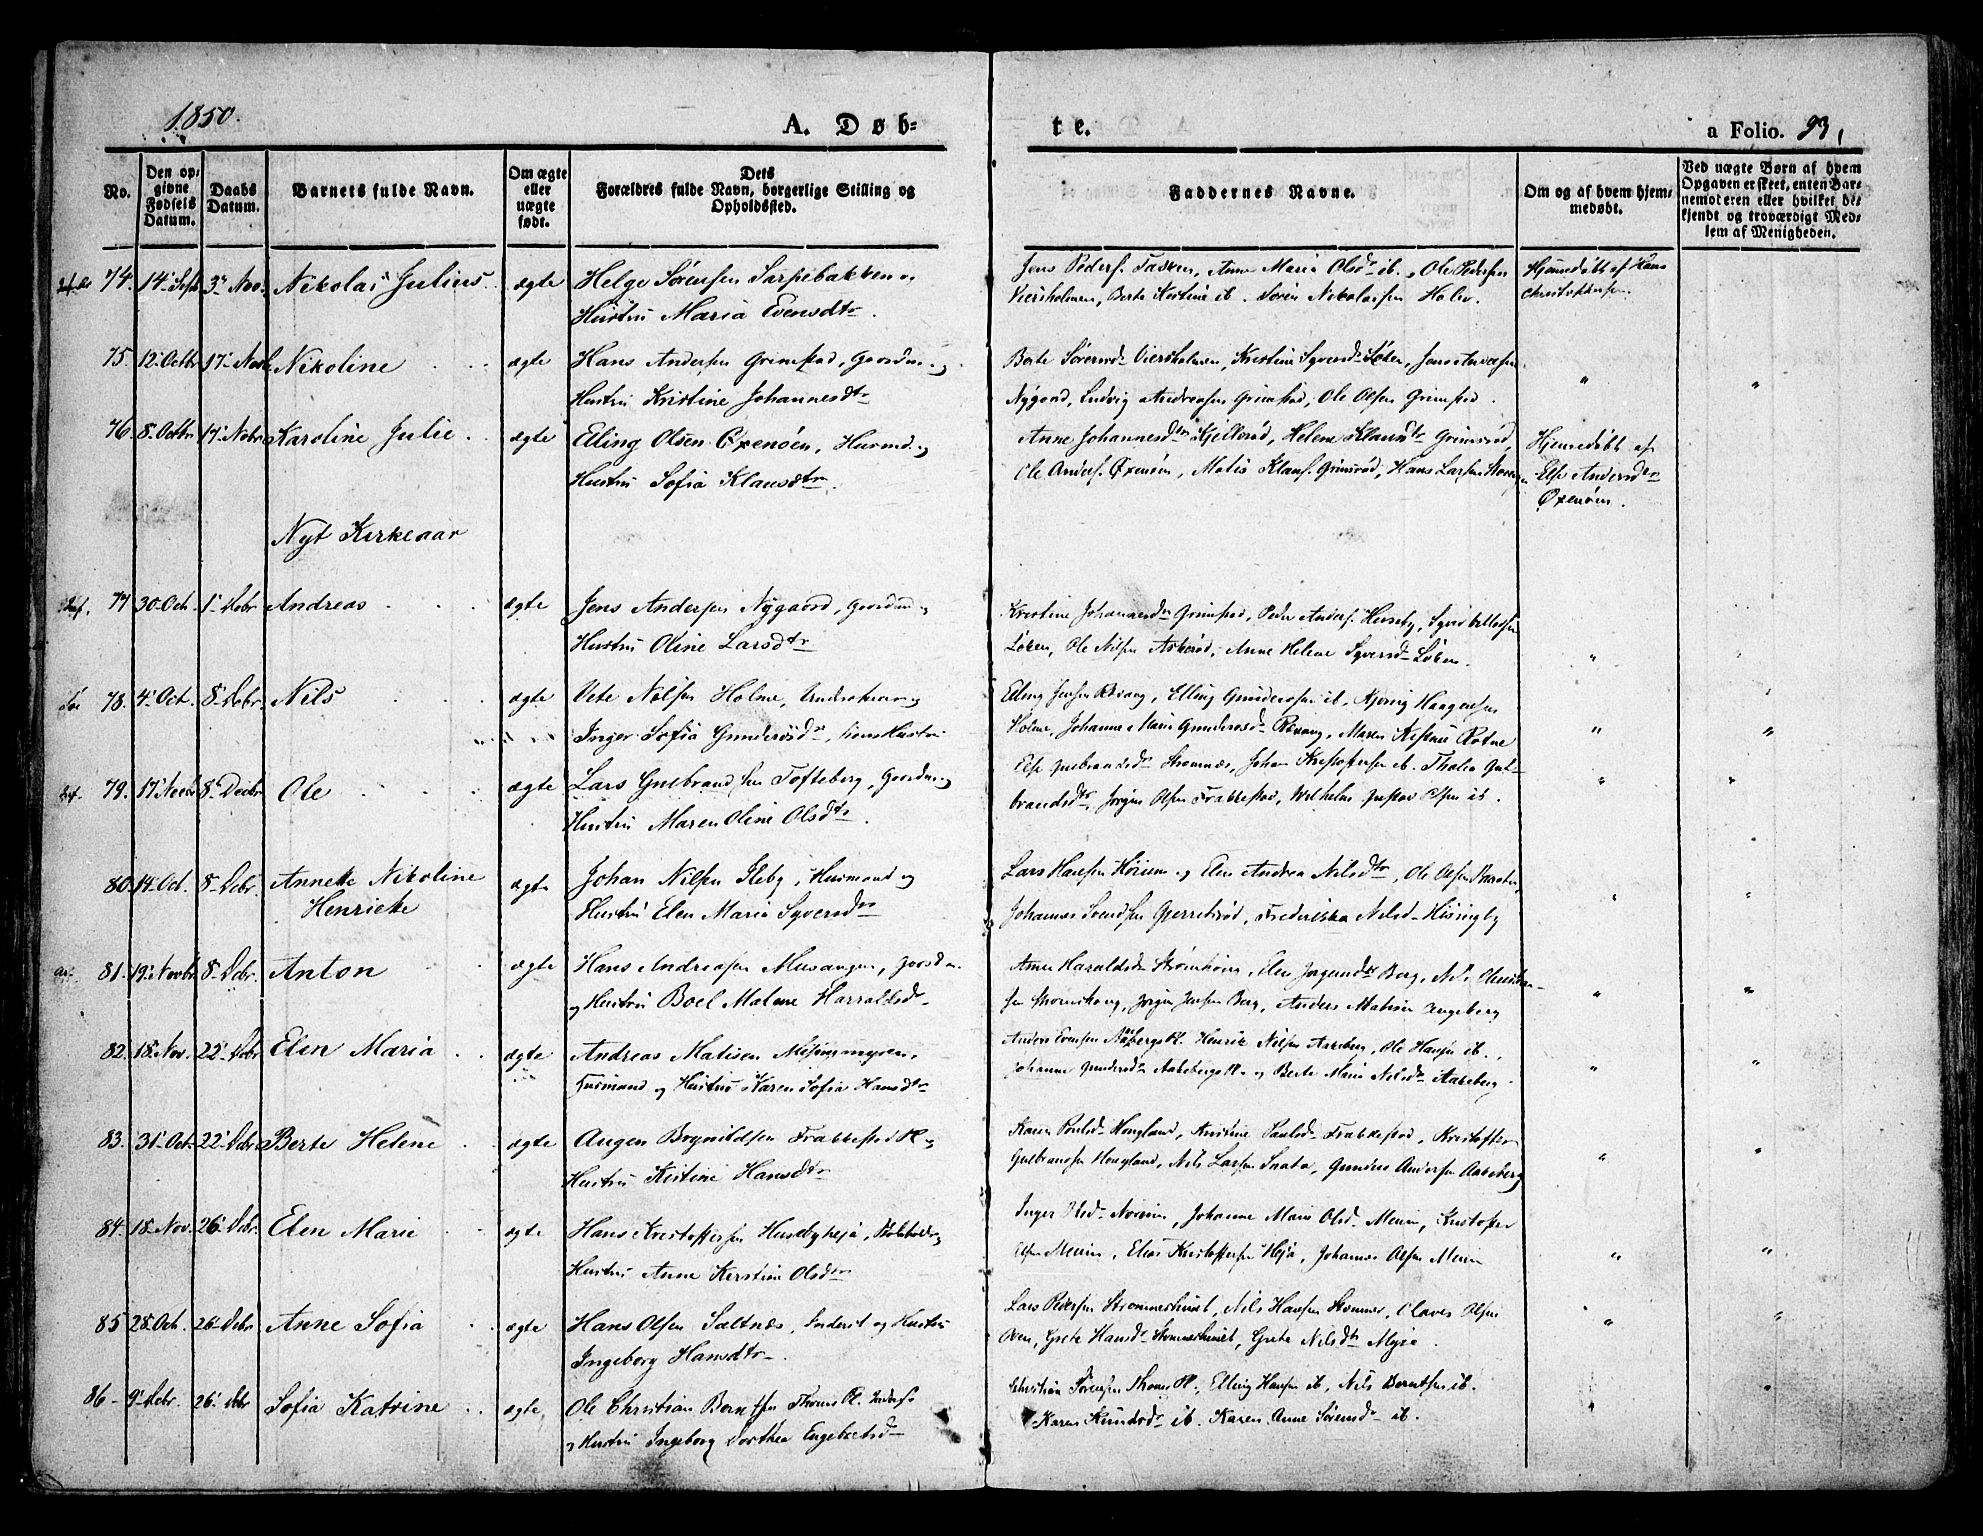 1850.
A. Døb-
te.
a Folio. 93,
No.
Den op-
givne
Fødsels
Datum.
Daabs
Datum.
Barnets fulde Navn.
Om ægte
eller
uægte
født.
Dets
Forældres fulde Navn, borgerlige Stilling og
Opholdssted.
Faddernes Navne.
Om og af hvem hjem-
medøbt.
Ved uægte Børn af hvem
Opgaven er skeet, enten Bar-
nemoderen eller hvilket be-
kjendt og troværdigt Med-
lem af Menigheden.
74. 14 Sept 3 Nov. Nikolai Julius ægte Helge Sørensen Sarpebakken og
Hustru Maria Evensdtr.
Jens Peders. Tasken, Anne Maria Olsdr ib., Ole Pedersen
Viersholmen, Berte Kristine ib. Søren Nikolaisen Holm.
Hjemedøbt af Hans
Christophersen.
75. 12 Octbr 17 Novb Nikoline ægte Hans Andersen Grimstad, Gaardm. og
Hustru Kristine Johannesdtr
Berte Sørensd. Viersholmen, Kristine Syversd. Løken, Jens Andersen
Nygaard, Ludvig Andreasen Grimstad, Ole Olsen Grimstad.
76. 8 Octbr 17 Nobr Karoline Julie ægte Elling Olsen Oxenøen, Husmd. og
Hustru Sofia Klausdtr.
Anne Johannesdtr Kjellerød, Helene Klausdtr Grimsrød,
Ole Anders. Oxenøen, Matis Klaus. Grimsrød, Hans Larsen Storengen
Hjemedøbt af
Else Andersdtr
Oxenøen.
Nyt Kirkeaar
77 30 Oct. 1 Debr Andreas ægte Jens Andersen Nygaard, Gaardm. og
Hustru Oline Larsdtr
Kristine Johannesdtr Grimstad, Peder Anders. Huseby, Syver
Løken, Ole Nilsen Askerød, Anne Helene Syversd. Løken.
78. 4 Oct. 8 Debr. Nils ægte Vete Nilsen Holme, og
Inger Sofia Gundersdr, hans Hustru
Elling Jensen Revaug, Elling Gundersen ib, Haagensen
Holme, Johanne Marie Gundersd. Revaug, Maren Rotne
79. 17 Novbr 8 Decbr Ole ægte Lars Gulbrandsen Tofteberg, Gaardm. og
Hustru Maren Oline Olsdtr.
Else Gulbrandsdr Strømnæs, Johan Kristoffersen ib. Thalia Gul-
brandsdtr, Jørgen Olsen Frakkestad, Wilhelm Gustav Olsen ib.
80. 14 Oct. 8 Debr. Annette Nikoline
Henriette ægte Johan Nilsen Ileby, Husmand og
Hustru Elen Maria Syversdtr
Lars Hansen Hörum og Elen Andrea Nilsdtr, Ole Olsen
Johannes Svendsen Gjerrebrød, Frederikka Nilsd. Hissingby
81. 19 Novbr 8 Debr. Anton ægte Hans Andreasen Musangen, Gaardm.
og Hustru Boel Malene Harraldsdr
Anne Haraldsdr Strømhoug, Elen Jørgensdr Berg, Nils Christian-
sen Strømshoug, Jørgen Jensen Berg, Anders Matisen Engeberg
82. 18 Nov. 22 Debr Elen Maria ægte Andreas Matisen Misinmyren,
Husmand og Hustru Karen Sofia Hansdtr
Anders Evensen Aabergs Pl. Henrik Nilsen Aarberg, Ole Hansen ib.,
Johanne Gundersdr Aabergs Pl. og Berte Maria Nilsdr Aarberg.
83. 31 Oct. 22 Debr. Berte Helene ægte Augen Brynildsen Frakkestad Pl. og
Hustru Kistine Hansdtr
Karen Poulsd. Hougland, Anstine Paulsd. Frakkestad, Kristoffer
Gulbrandsen Hougland, Nils Larsen Snata, Gunder Andersen Aakeberg
84. 18 Nov. 26 Debr. Elen Marie ægte Hans Kristoffersen Husebyheja, og
Hustru Anne Kerstine Olsdtr
Inger Olsd. Norum, Johanne Marie Olsd. Menin, Kristoffer
Olsen Menin, Elias Kristoffersen Heja, Johannes Olsen Menin
85 28 Oct. 26 Debr Anne Sofia ægte Hans Olsen Saltnæs, Inderst og Hustru
Ingeborg Hansdtr.
Lars Pedersen Strømmeshuset, Nils Hansen Strømnæs, Olaves Olsen
Oven, Grete Hansdr Strømmeshuset, Grete Nilsdtr Myre.
86 9 Debr. 26 Debr Sofia Katrine ægte Ole Christian Berntsen Thorns Pl. Inderst
og Hustru Ingeborg Dorthea Engebretsd.
Christian Sørensen Thorns Pl., Elling Hansen ib, Nils Berntsen ib.
Karen Knudsd. ib. Karen Anne Sørensdr ib.